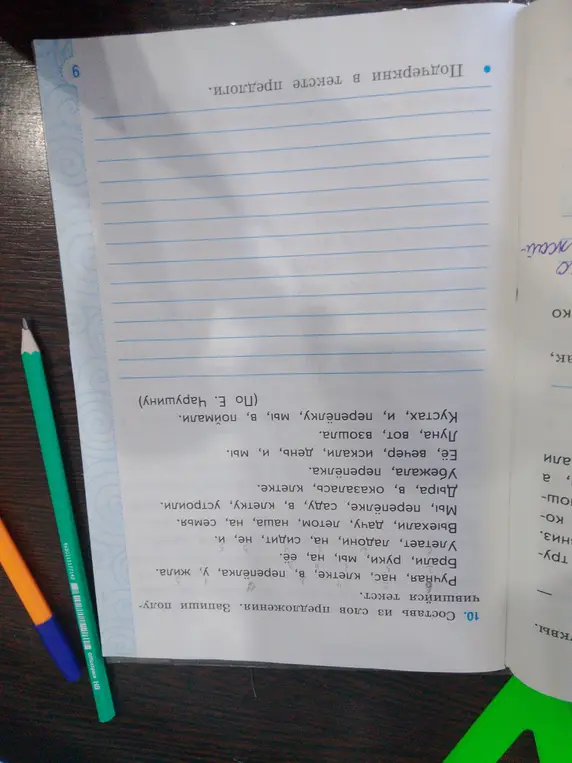 10. Составь из слов предложения. Запиши полу-
чившийся текст.
Ручная, нас, клетке, в, перепёлка, у, жила.
Брали, руки, мы, на, её.
Улетает, ладони, на, сидит, не, и.
Выехали, дачу, летом, наша, на, семья.
Мы, перепёлке, саду, в, клетку, устроили.
Дыра, в, оказалась, клетке.
Убежала, перепёлка.
Её, вечер, искали, день, и, мы.
Луна, вот, взошла.
Кустах, и, перепёлку, мы, в, поймали.
(По Е. Чарушину)
• Подчеркни в тексте предлоги.
9
уквы.
—
тру
вниз.
ко-
нош-
, а
али
ак,
ко